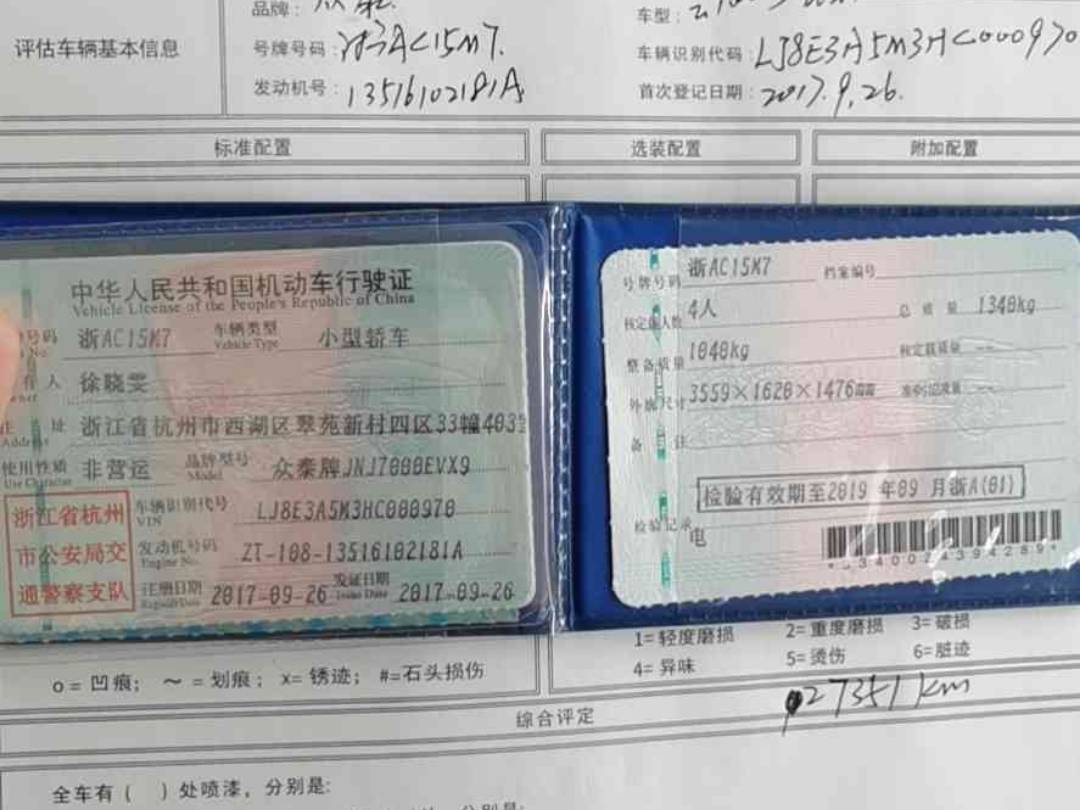 品牌: 众泰
车型:
评估车辆基本信息
号牌号码: 浙AC15M7.
车辆识别代码: LJ8E3A5M3HC000970
发动机号: 13516102181A
首次登记日期: 2017.9.26.
标准配置 选装配置 附加配置
中华人民共和国机动车行驶证
Vehicle License of the People's Republic of China
号码 浙AC15M7 车辆类型 小型轿车
No. Vehicle Type
有人 徐晓雯
住 址 浙江省杭州市西湖区翠苑新村四区33幢403室
Address
使用性质 非营运 品牌型号 众泰牌JNJ7000EVX9
Use Character Model
浙江省杭州
市公安局交
通警察支队
车辆识别代号 LJ8E3A5M3HC000970
VIN
发动机号码 ZT-108-13516102181A
Engine No.
注册日期 2017-09-26 发证日期 2017-09-26
Register Date Issue Date
号牌号码 浙AC15M7 档案编号
核定载人数 4人 总 质 量 1348kg
整备质量 1048kg 核定载质量 --
外廓尺寸 3559×1620×1476mm 准牵引总质量 --
备 注
检验有效期至2019 年09 月浙A(01)
检验记录
电
*3340024394289*
1=轻度磨损 2=重度磨损 3=破损
4=异味 5=烫伤 6=脏迹
o=凹痕; ～=划痕; x=锈迹; #=石头损伤
综合评定
27351km
全车有( )处喷漆, 分别是:
分别是: